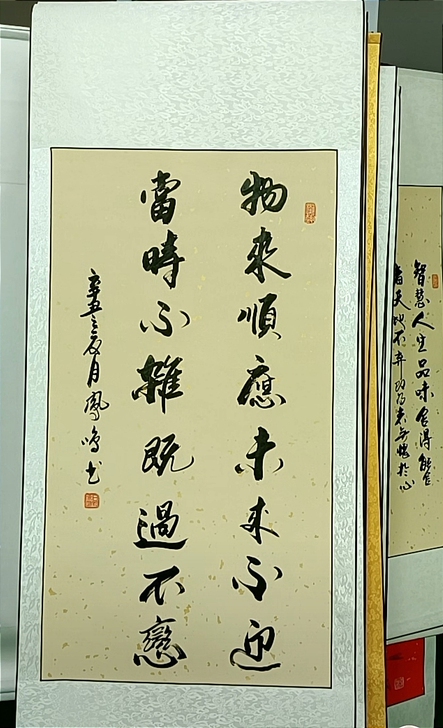 物來順應未來不迎
當時不雜既過不戀
辛丑之夏月鳳鳴书
智慧人生品味舍得能
天地不弃功为未无愧於心